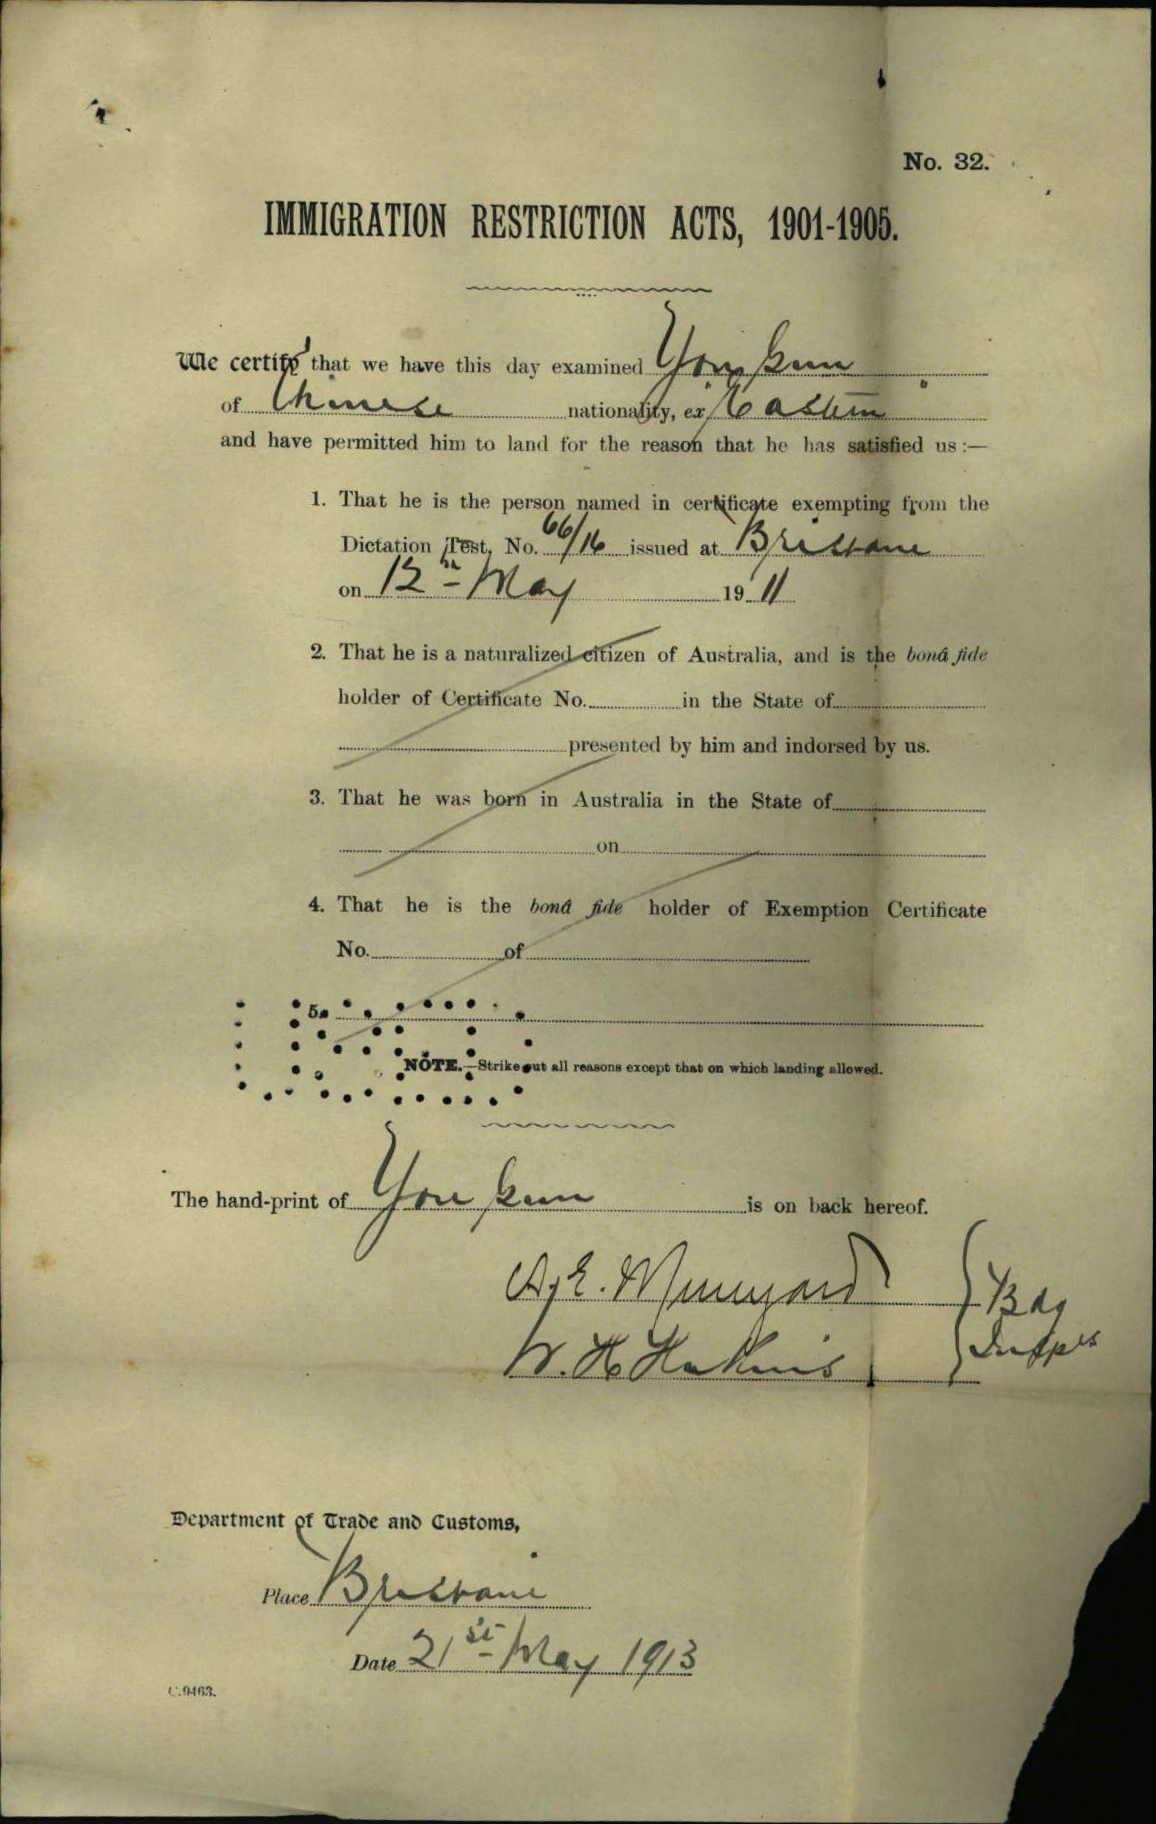 No. 32.
IMMIGRATION RESTRICTION ACTS, 1901-1905.
We certify that we have this day examined You Gun
of Chinese nationality, ex "Eastern"
and have permitted him to land for the reason that he has satisfied us :—
1. That he is the person named in certificate exempting from the
Dictation Test, No. 66/16 issued at Brisbane
on 12th May 1911
2. That he is a naturalized citizen of Australia, and is the bonâ fide
holder of Certificate No. in the State of
presented by him and indorsed by us.
3. That he was born in Australia in the State of
on
4. That he is the bonâ fide holder of Exemption Certificate
No. of
5.
NOTE.—Strike out all reasons except that on which landing allowed.
The hand-print of You Gun is on back hereof.
A. E. Munnyard
W. H. Hakins
Bdg
Insprs
Department of Trade and Customs,
Place Brisbane
Date 21st May 1913
C.9463.